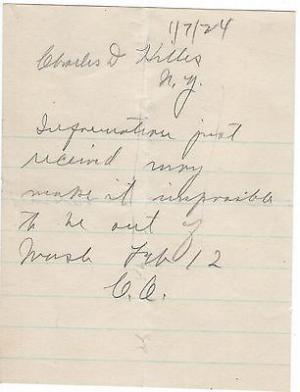 1/7/24
Charles D Hilles
N.Y.
Information just
received may
make it impossible
to be out of
Wash Feb 12
C.C.